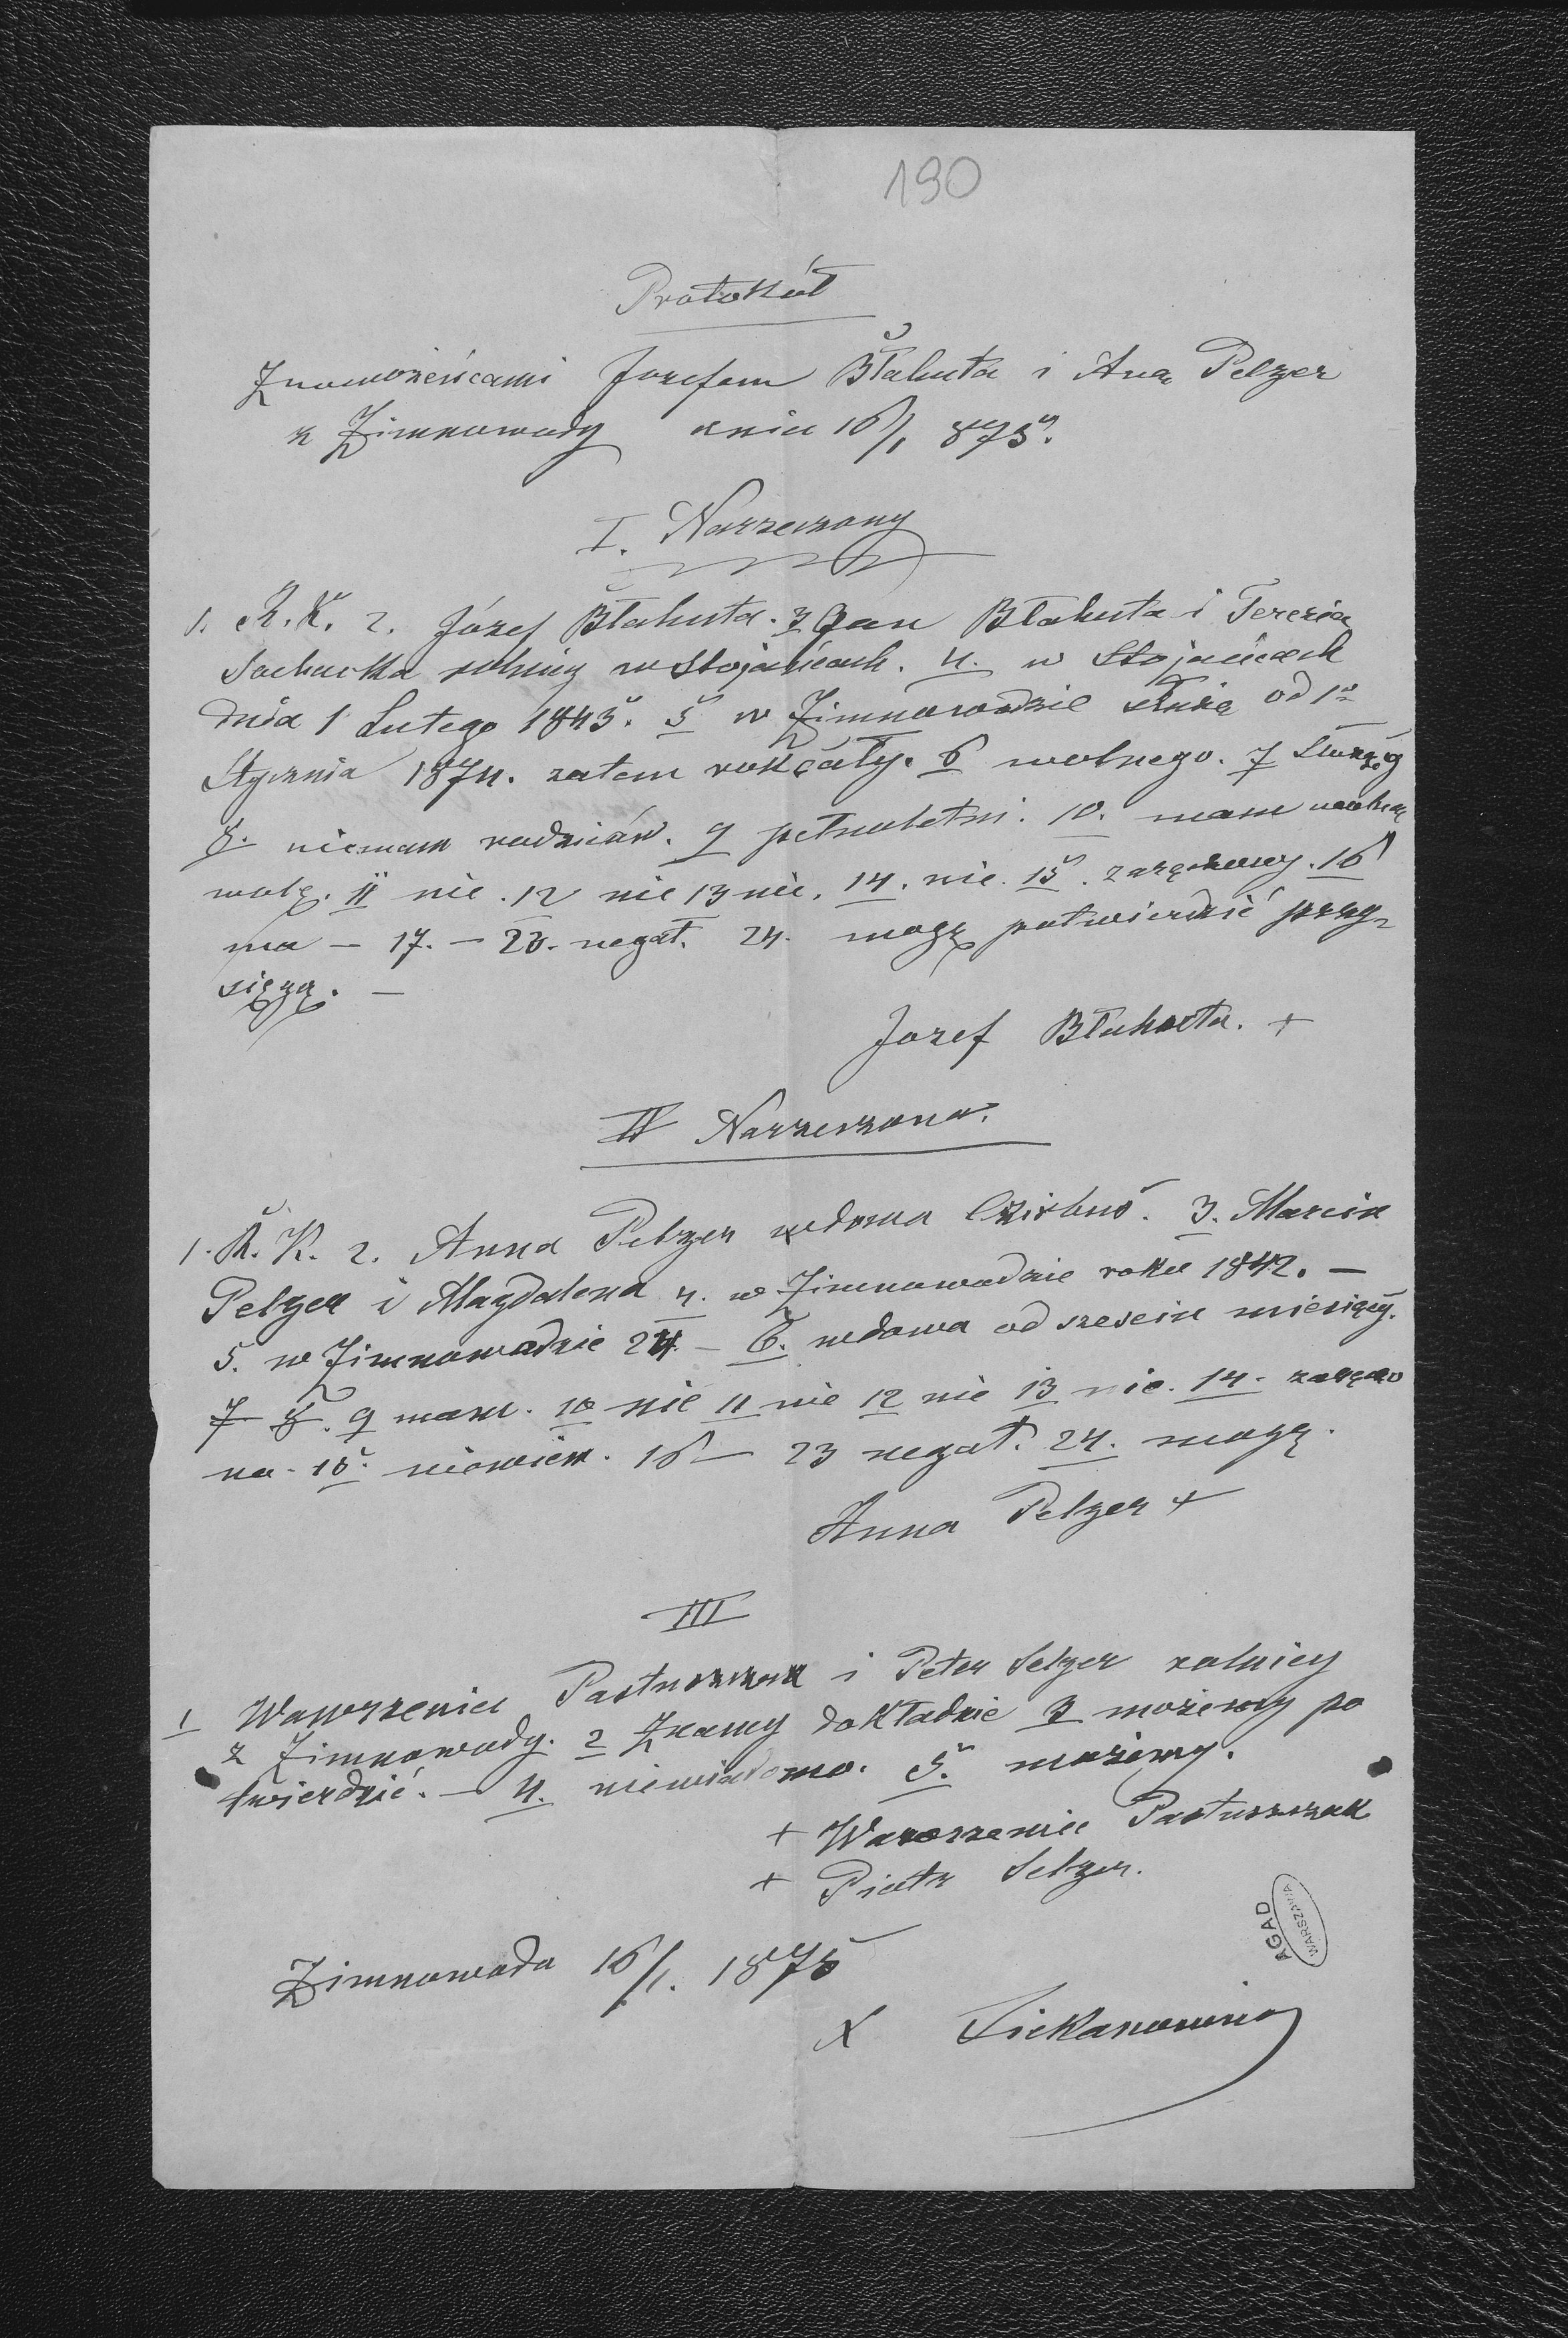 190
Protokół
Znowożeńcami Jozefem Błahuta i Aną Pelzer
z Zimnowody dnia 16/1 875.
I. Narzeczony
1. R. K. 2. Józef Błahuta. 3 Jan Błahuta i Terezia
Sochacka rolnicy w Stojańcach. 4. w Stojańcach
dnia 1 Lutego 1845. 5 w Zimnowodzie służę od 1go
Stycznia 1874. zatem rok cały. 6 wolnego. 7 Służący
8. niemam rodziców. 9 pełnoletni. 10. mam wolną
wolę. 11 nie. 12 nie 13 nie. 14. nie. 15. zaręczony. 16
ma — 17. — 23. negat. 24. mogę potwierdzić przy-
sięgą. —
Jozef Błahuta. +
II Narzeczona.
1. R. K. 2. Anna Pelzer wdowa 3. Marcin
Pelzer i Magdalena 4. w Zimnowodzie roku 1842. —
5. w Zimnowodzie 24. — 6. wdowa od sześciu miesięcy.
7 8. 9 mam. 10 nie 11 nie 12 nie 13 nie. 14. zaręczo
na. 15. niewiem. 16 — 23 negat. 24. mogę.
Anna Pelzer +
III
1 Wawrzeniec Pastuszczak i Peter Selzer rolnicy
z Zimnowody. 2 Znamy dokładnie 3 możemy po
twierdzić. — 4. niewiadomo. 5. możemy.
+ Wawrzeniec Pastuszczak
+ Piotr Selzer.
AGAD
WARSZAWA
Zimnowoda 16/1. 1875
X